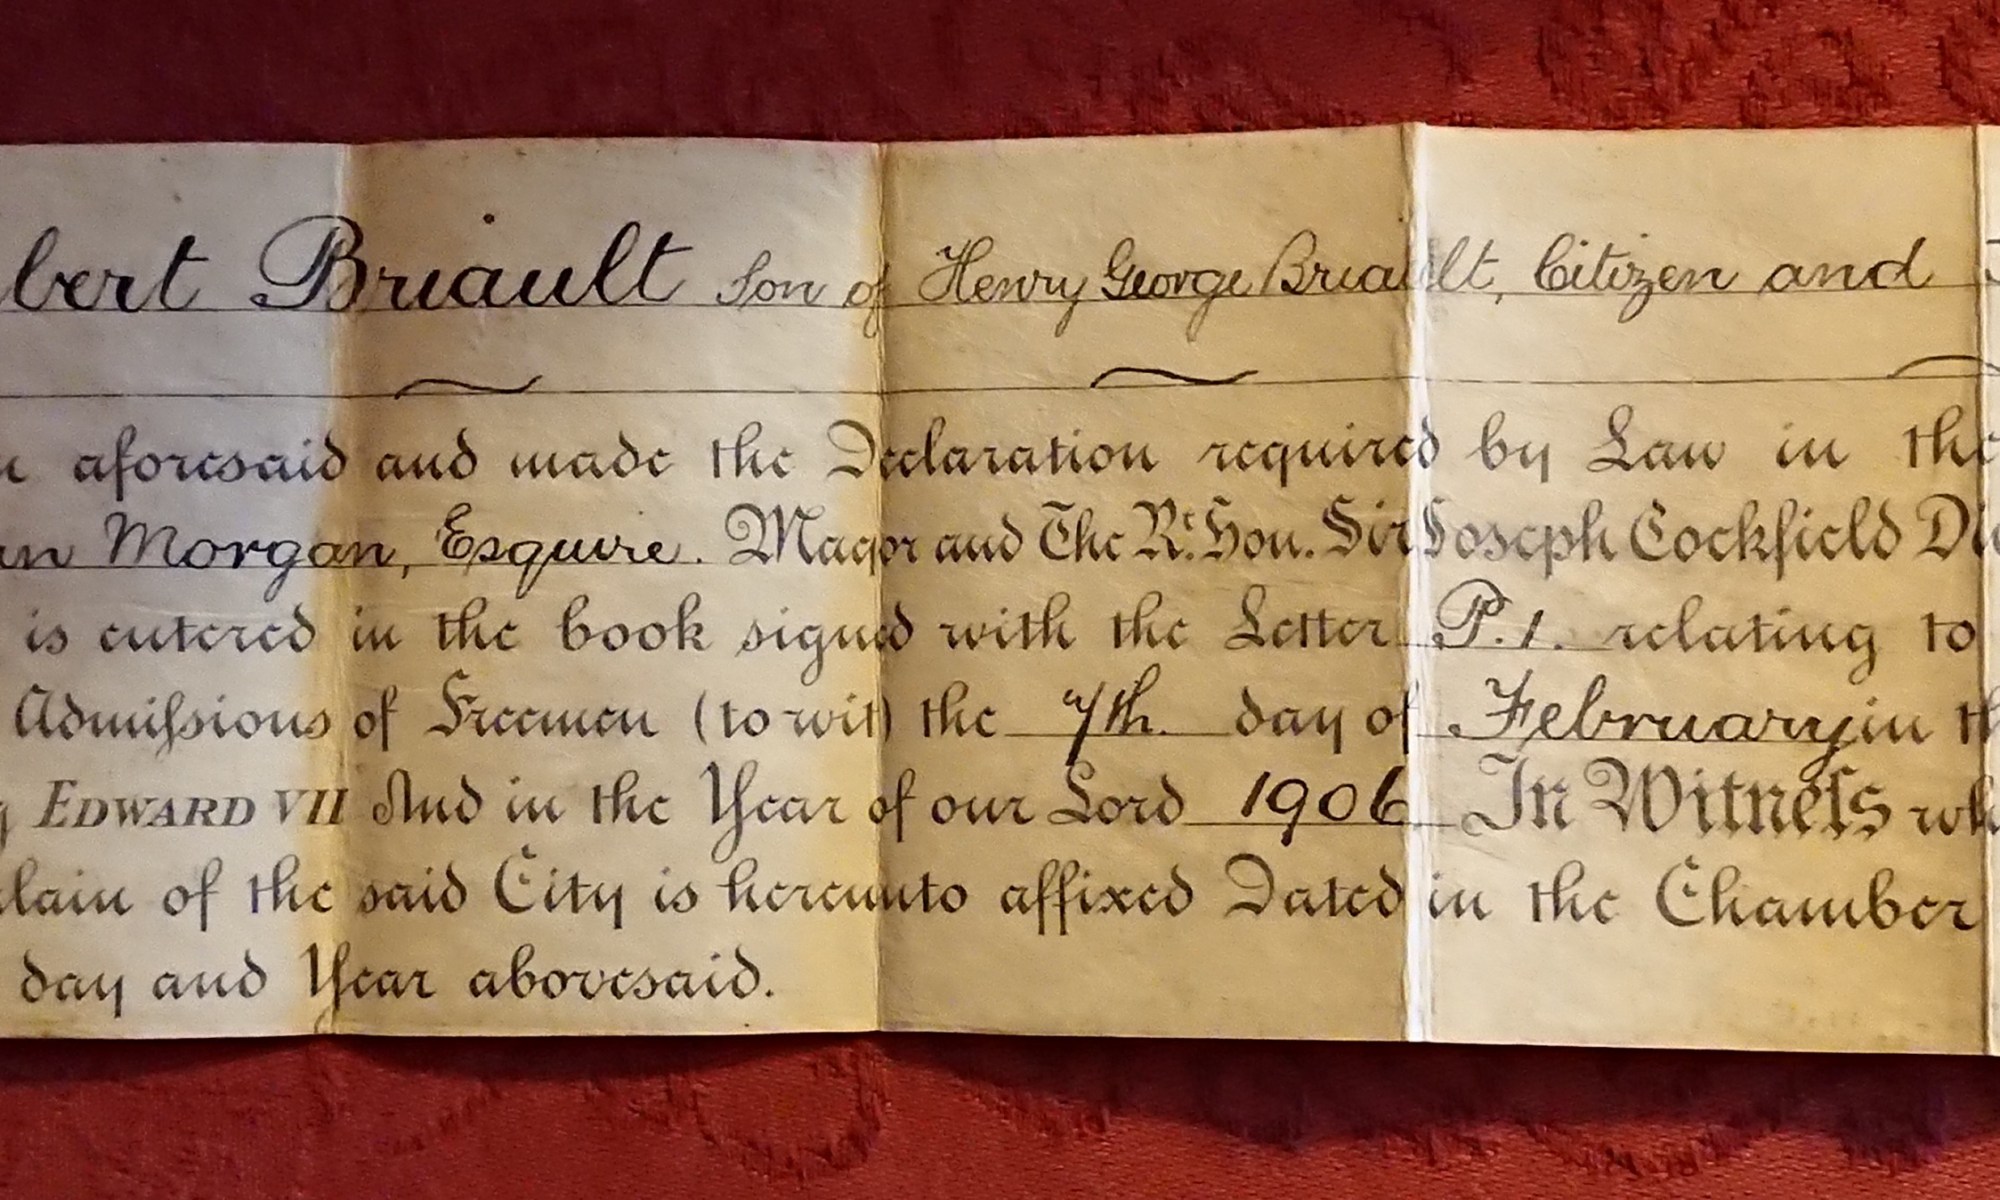 bert Briault Son of Henry George Briault, Citizen and
aforesaid and made the Declaration required by Law in the
an Morgan, Esquire. Mayor and The Rt. Hon. Sir Joseph Cockfield Di
is entered in the book signed with the Letter P. 1. relating to
Admiſsions of Freemen (to wit) the 7th. day of February in th
g EDWARD VII And in the Year of our Lord 1906. In Witneſs wh
lain of the said City is hereunto affixed Dated in the Chamber
day and Year abovesaid.